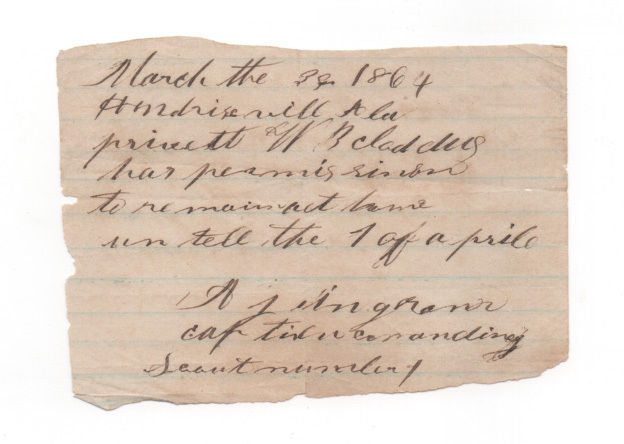 March the 30 1864
Hendrixvill Ala
privett W B claddus
has permission
to remain act home
un tell the 1 of a prile
A J ingram
captin comanding
Scout number 1